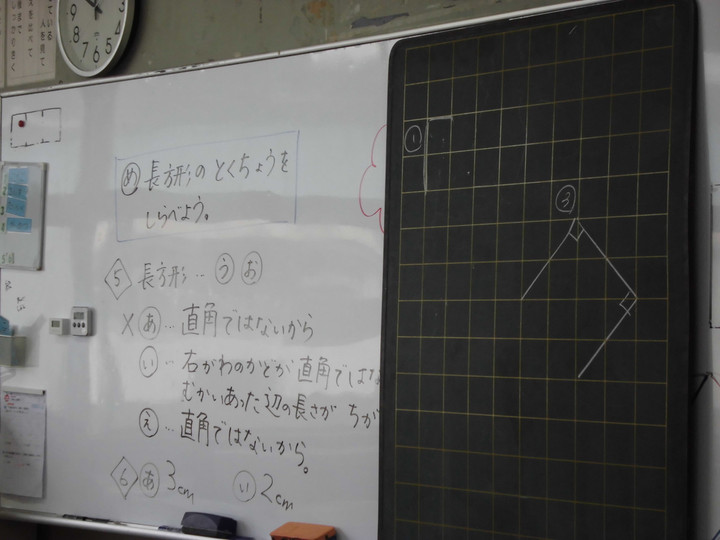 め 長方形の とくちょうを
しらべよう。
5 長方形… う お
× あ … 直角ではないから
い … 右がわのかどが 直角では
むかいあった辺の長さが ちが
え … 直角ではないから。
6 あ 3cm い 2cm
1
3